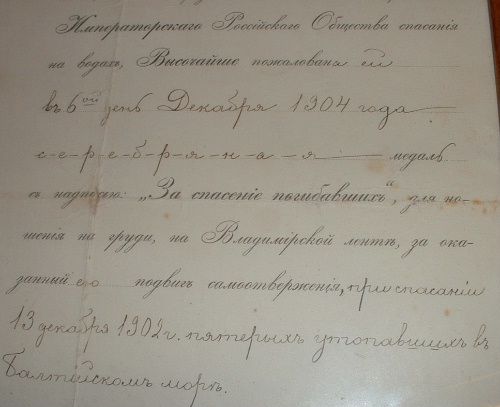 Императорскаго Россійскаго Общества спасанія
на водахъ, Высочайше пожалована ей
въ 6ый день Декабря 1904 года
с-е-р-е-б-р-я-н-а-я медаль
съ надписью: „За спасеніе погибавшихъ“, для но-
шенія на груди, на Владимірской лентѣ, за ока-
занный ею подвигъ самоотверженія, при спасаніи
13 декабря 1902 г. пятерыхъ утопавшихъ въ
Балтійскомъ морѣ.